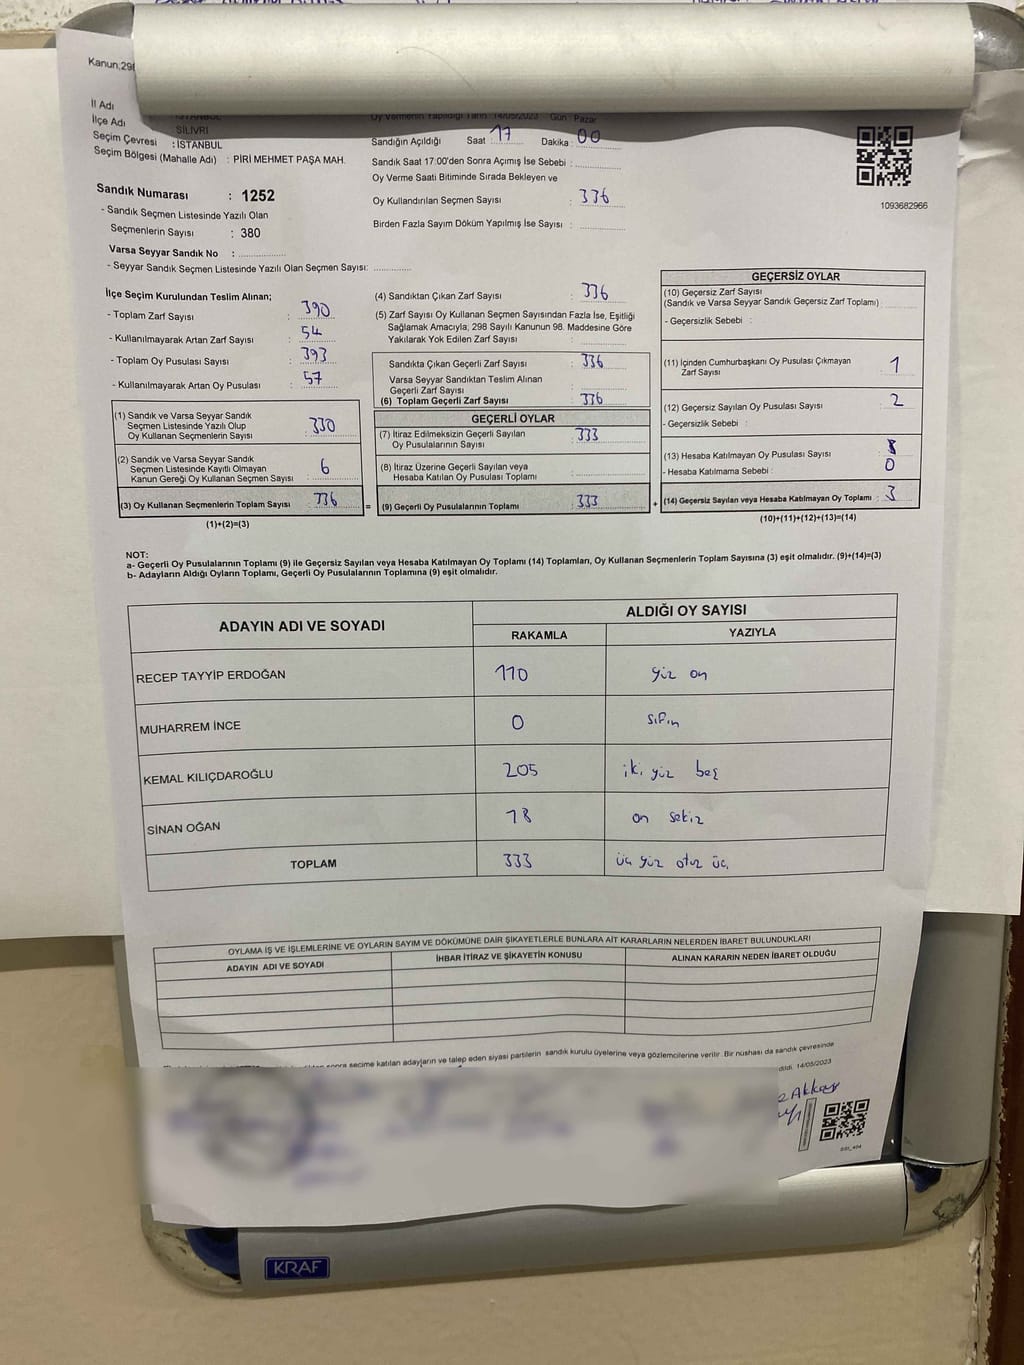 Kanun,298
İl Adı
İlçe Adı : SİLİVRİ
Seçim Çevresi : İSTANBUL
Seçim Bölgesi (Mahalle Adı) : PİRİ MEHMET PAŞA MAH.
Sandık Numarası : 1252
- Sandık Seçmen Listesinde Yazılı Olan
Seçmenlerin Sayısı : 380
Varsa Seyyar Sandık No :
- Seyyar Sandık Seçmen Listesinde Yazılı Olan Seçmen Sayısı:
Oy Vermenin Yapıldığı Tarih 14/05/2023 Gün : Pazar
Sandığın Açıldığı Saat 17 Dakika : 00
Sandık Saat 17:00'den Sonra Açımış İse Sebebi :
Oy Verme Saati Bitiminde Sırada Bekleyen ve
Oy Kullandırılan Seçmen Sayısı : 336
Birden Fazla Sayım Döküm Yapılmış İse Sayısı :
1093682966
İlçe Seçim Kurulundan Teslim Alınan;
- Toplam Zarf Sayısı : 390
- Kullanılmayarak Artan Zarf Sayısı : 54
- Toplam Oy Pusulası Sayısı : 393
- Kullanılmayarak Artan Oy Pusulası : 57
(1) Sandık ve Varsa Seyyar Sandık
Seçmen Listesinde Yazılı Olup
Oy Kullanan Seçmenlerin Sayısı : 330
(2) Sandık ve Varsa Seyyar Sandık
Seçmen Listesinde Kayıtlı Olmayan
Kanun Gereği Oy Kullanan Seçmen Sayısı : 6
(3) Oy Kullanan Seçmenlerin Toplam Sayısı : 336
(1)+(2)=(3)
(4) Sandıktan Çıkan Zarf Sayısı : 336
(5) Zarf Sayısı Oy Kullanan Seçmen Sayısından Fazla İse, Eşitliği
Sağlamak Amacıyla, 298 Sayılı Kanunun 98. Maddesine Göre
Yakılarak Yok Edilen Zarf Sayısı :
Sandıkta Çıkan Geçerli Zarf Sayısı : 336
Varsa Seyyar Sandıktan Teslim Alınan
Geçerli Zarf Sayısı :
(6) Toplam Geçerli Zarf Sayısı : 336
GEÇERLİ OYLAR
(7) İtiraz Edilmeksizin Geçerli Sayılan
Oy Pusulalarının Sayısı : 333
(8) İtiraz Üzerine Geçerli Sayılan veya
Hesaba Katılan Oy Pusulası Toplamı :
= (9) Geçerli Oy Pusulalarının Toplamı : 333 +
GEÇERSİZ OYLAR
(10) Geçersiz Zarf Sayısı
(Sandık ve Varsa Seyyar Sandık Geçersiz Zarf Toplamı)
- Geçersizlik Sebebi :
(11) İçinden Cumhurbaşkanı Oy Pusulası Çıkmayan
Zarf Sayısı : 1
(12) Geçersiz Sayılan Oy Pusulası Sayısı : 2
- Geçersizlik Sebebi :
(13) Hesaba Katılmayan Oy Pusulası Sayısı : 0
- Hesaba Katılmama Sebebi :
(14) Geçersiz Sayılan veya Hesaba Katılmayan Oy Toplamı : 3
(10)+(11)+(12)+(13)=(14)
NOT:
a- Geçerli Oy Pusulalarının Toplamı (9) ile Geçersiz Sayılan veya Hesaba Katılmayan Oy Toplamı (14) Toplamları, Oy Kullanan Seçmenlerin Toplam Sayısına (3) eşit olmalıdır. (9)+(14)=(3)
b- Adayların Aldığı Oyların Toplamı, Geçerli Oy Pusulalarının Toplamına (9) eşit olmalıdır.
ADAYIN ADI VE SOYADI ALDIĞI OY SAYISI
RAKAMLA YAZIYLA
RECEP TAYYİP ERDOĞAN 110 yüz on
MUHARREM İNCE 0 sıfır
KEMAL KILIÇDAROĞLU 205 iki yüz beş
SİNAN OĞAN 18 on sekiz
TOPLAM 333 üç yüz otuz üç
OYLAMA İŞ VE İŞLEMLERİNE VE OYLARIN SAYIM VE DÖKÜMÜNE DAİR ŞİKAYETLERLE BUNLARA AİT KARARLARIN NELERDEN İBARET BULUNDUKLARI
ADAYIN ADI VE SOYADI İHBAR İTİRAZ VE ŞİKAYETİN KONUSU ALINAN KARARIN NEDEN İBARET OLDUĞU
sonra seçime katılan adayların ve talep eden siyasi partilerin sandık kurulu üyelerine veya gözlemcilerine verilir. Bir nüshası da sandık çevresinde
14/05/2023
Akkaya
KRAF